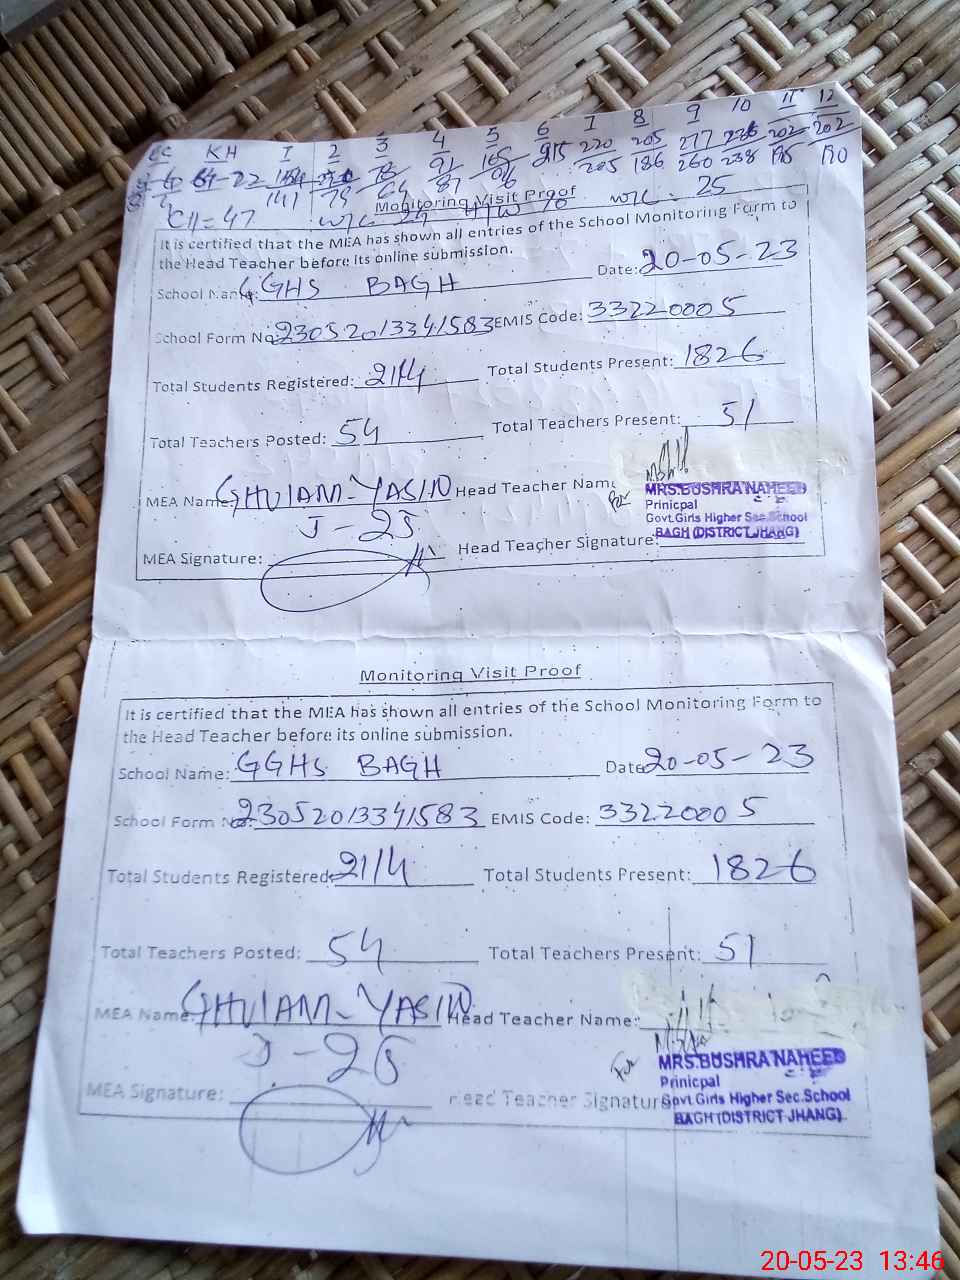 KH I 2 3 4 5 6 7 8 9 10 11 12
91 215 220 205 277 236 202 202
141 79 64 87 205 186 260 238 190
CH = 47 W/C 25
Monitoring Visit Proof
It is certified that the MEA has shown all entries of the School Monitoring Form to
the Head Teacher before its online submission.
Date: 20-05-23
School Name: GGHS BAGH
School Form No: 23052013341583 EMIS Code: 33220005
Total Students Registered: 2114 Total Students Present: 1826
Total Teachers Posted: 54 Total Teachers Present: 51
MEA Name: GHULAM-YASIN Head Teacher Name
J-25
For
MRS.BUSHRA NAHEED
Prinicpal
Govt.Girls Higher Sec.School
BAGH (DISTRICT JHANG)
MEA Signature: Head Teacher Signature:
Monitoring Visit Proof
It is certified that the MEA has shown all entries of the School Monitoring Form to
the Head Teacher before its online submission.
School Name: GGHS BAGH Date 20-05-23
School Form No: 23052013341583 EMIS Code: 33220005
Total Students Registered: 2114 Total Students Present: 1826
Total Teachers Posted: 54 Total Teachers Present: 51
MEA Name: GHULAM-YASIN Head Teacher Name:
J-25
For
MRS.BUSHRA NAHEED
Prinicpal
MEA Signature: Head Teacher Signature
Govt.Girls Higher Sec.School
BAGH (DISTRICT JHANG)
20-05-23 13:46